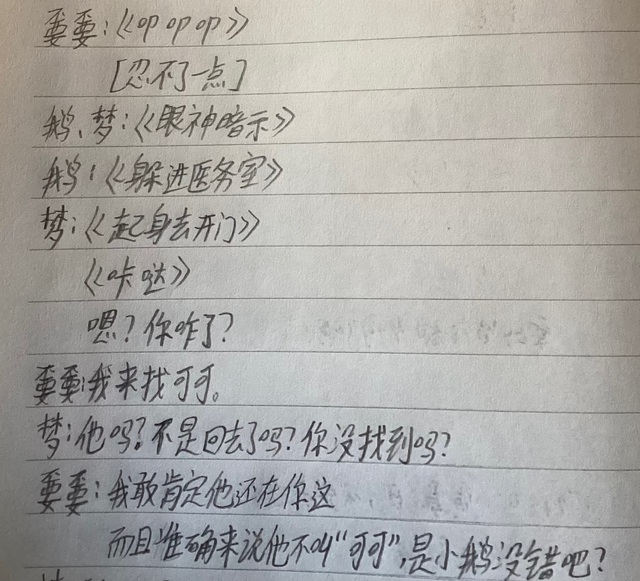 耍耍:《叩叩叩》
[忍不了一点]
鹅、梦:《眼神暗示》
鹅:《躲进医务室》
梦:《起身去开门》
《咔哒》
嗯?你咋了?
耍耍:我来找可可。
梦:他吗?不是回去了吗?你没找到吗?
耍耍:我敢肯定他还在你这
而且准确来说他不叫"可可",是小鹅没错吧?